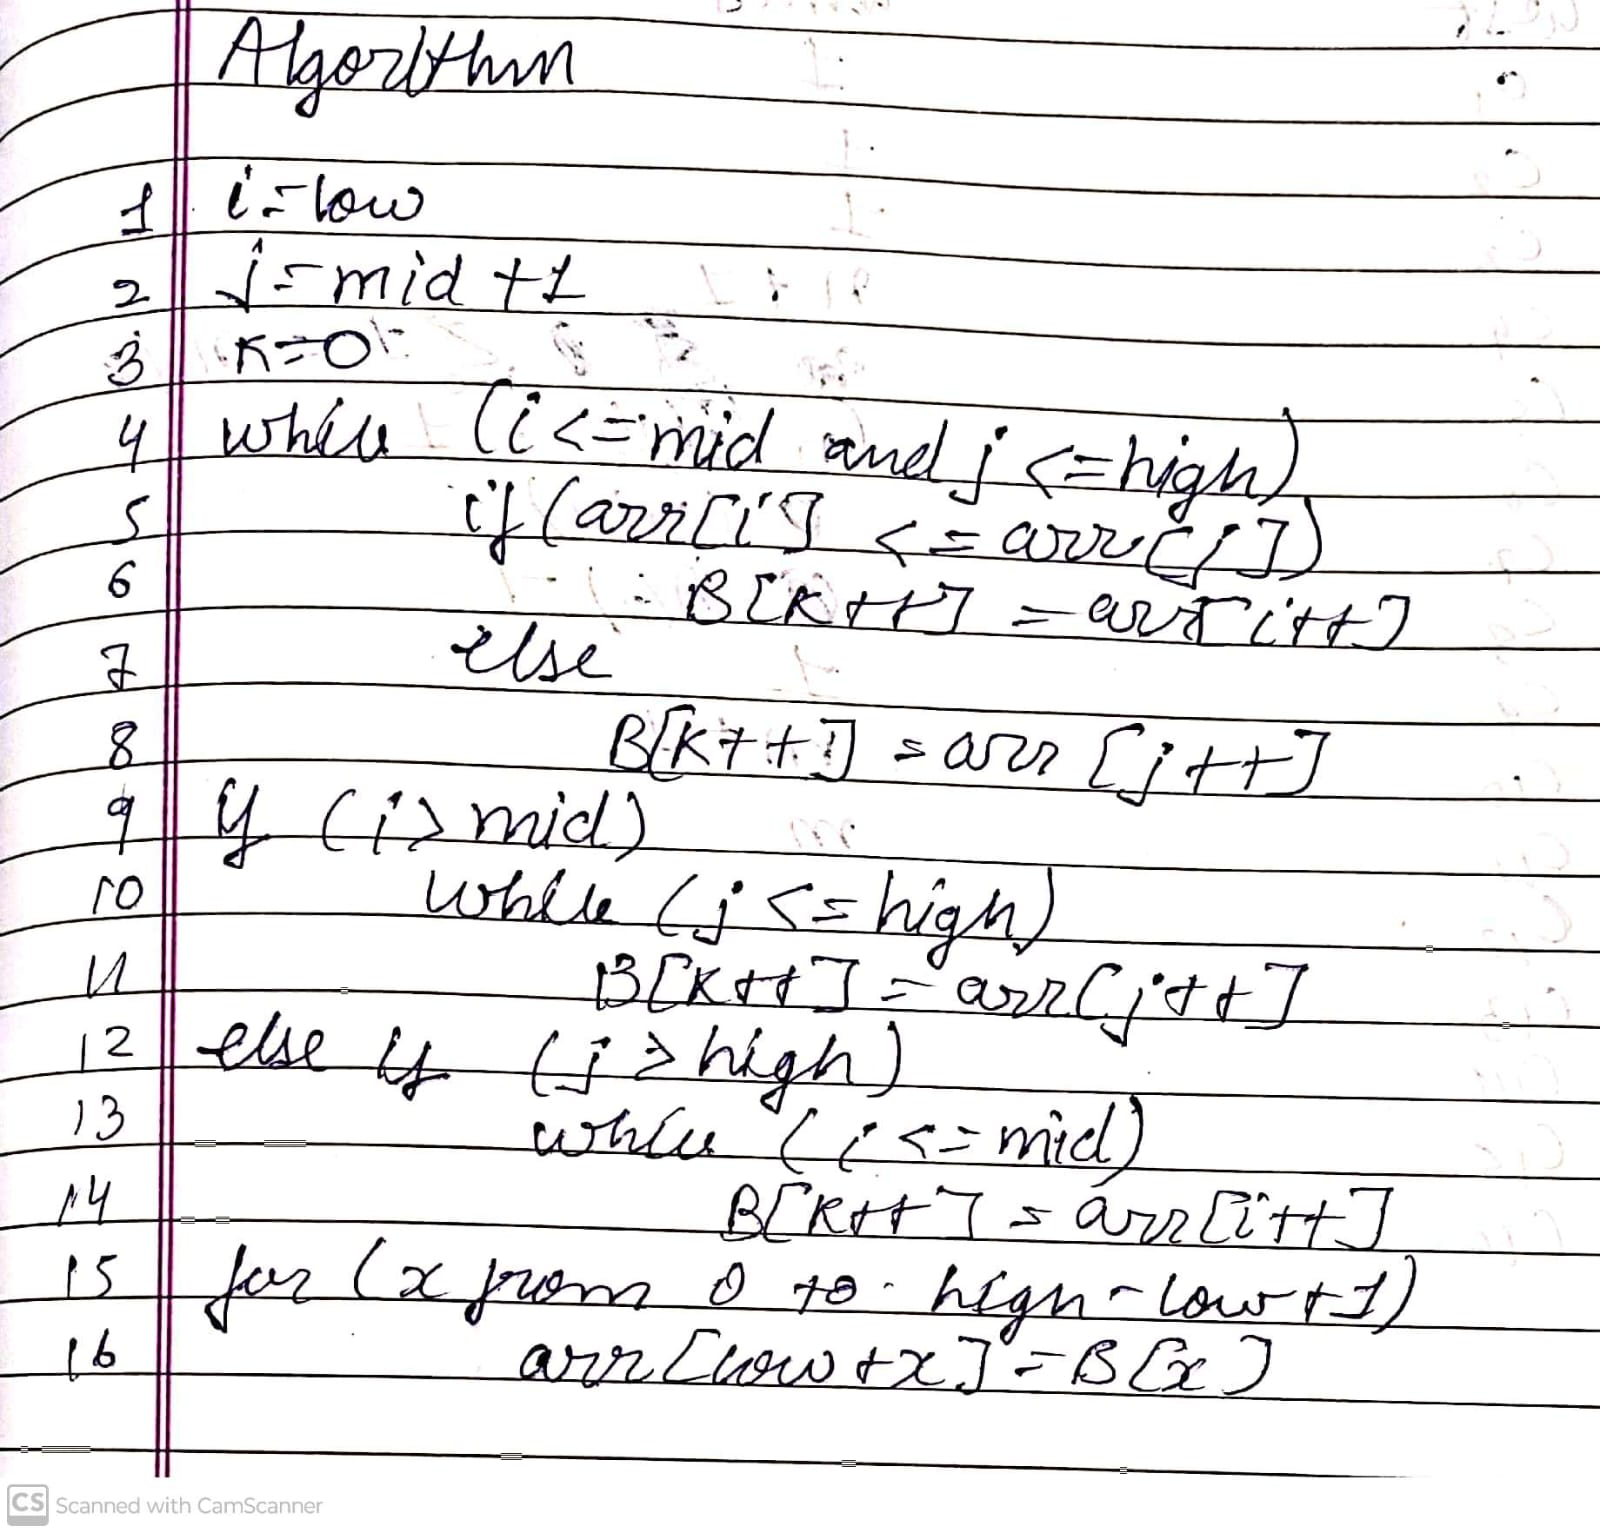 Algorithm
1 i=low
2 j=mid+1
3 K=0
4 while (i<=mid and j<=high)
5 if(arr[i] <=arr[j])
6 B[K++] =arr[i++]
7 else
8 B[K++] =arr[j++]
9 if (i>mid)
10 while (j<=high)
11 B[K++] =arr[j++]
12 else if (j>high)
13 while (i<=mid)
14 B[K++] =arr[i++]
15 for (x from 0 to high-low+1)
16 arr[low+x]=B[x]
CS Scanned with CamScanner